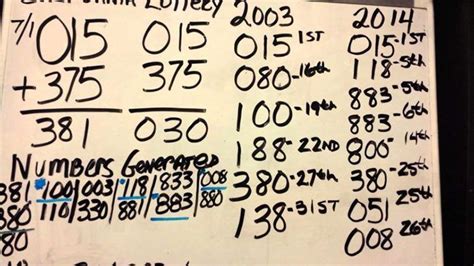 Lottery 2003 2014
7/1 015 015 015-1ST 015-1ST
+375 375 080-16th 118-5th
381 030 100-19th 883-5th
188-22ND 883-6th
Numbers Generated 380-27th 800-14th
381 100 003 118 833 008 138-31ST 380-25th
380 110 330 881 883 880 051 25th
380 008 26th